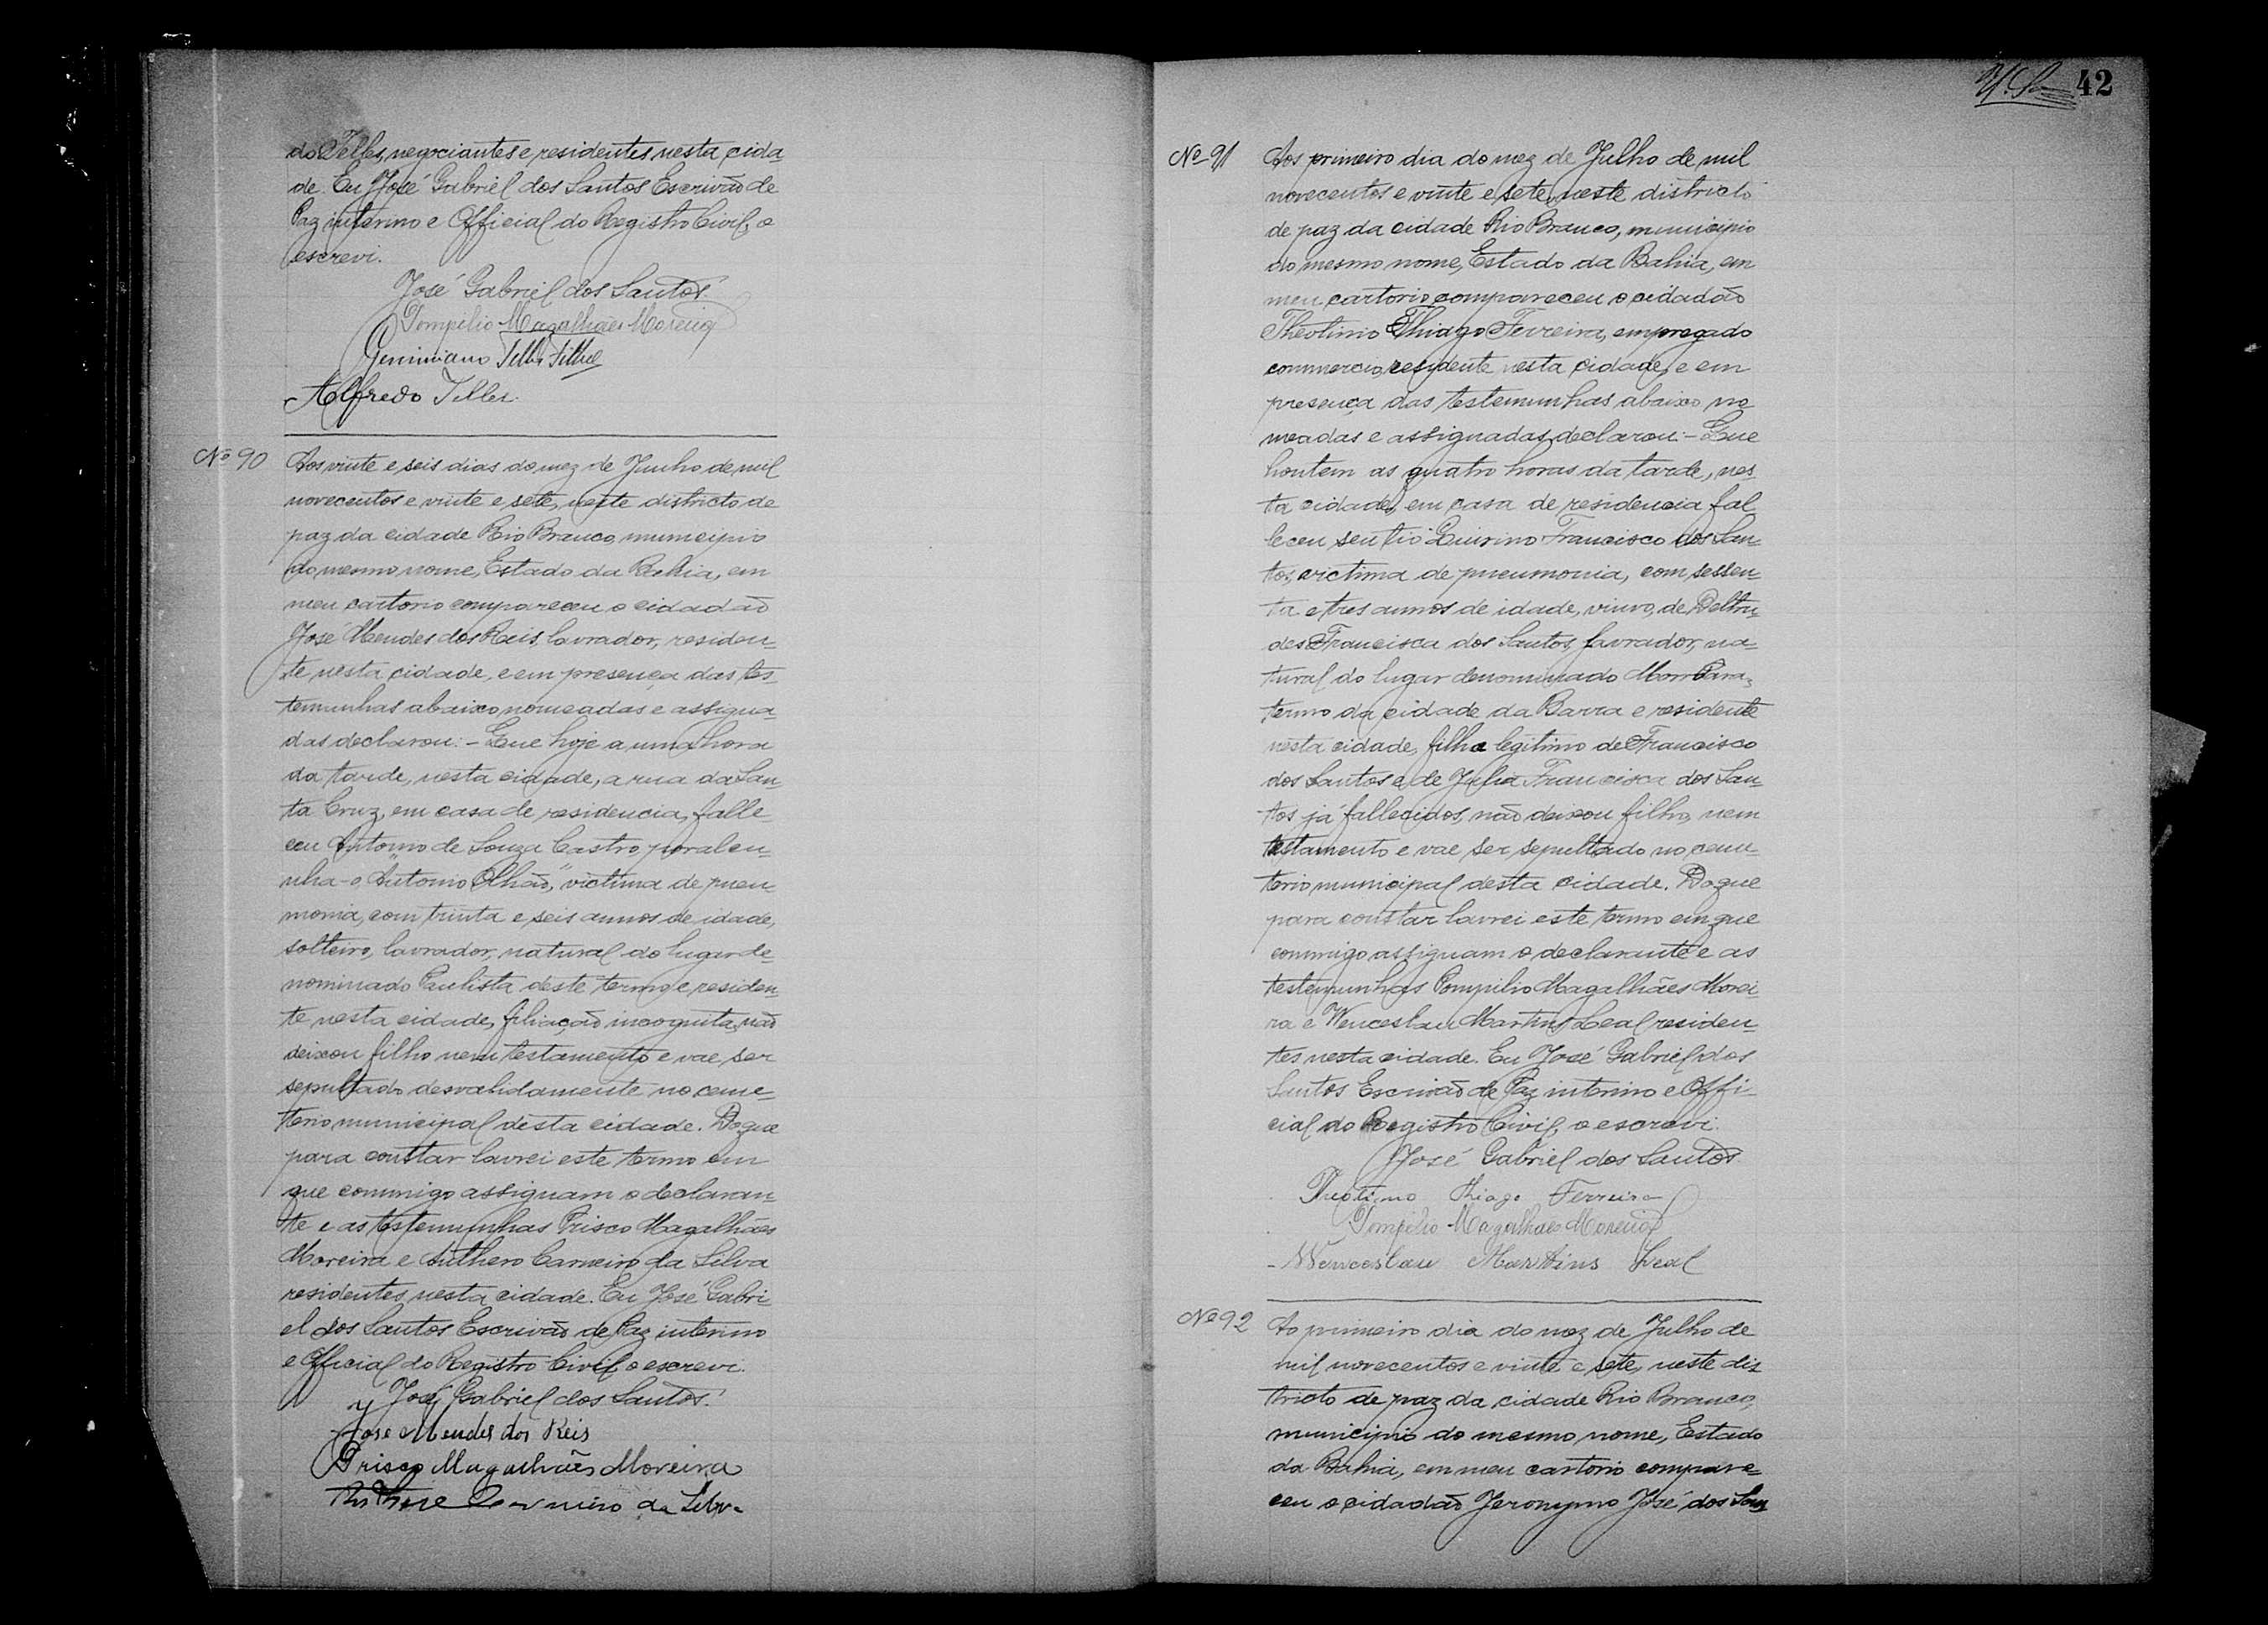 do Telles, negociantes e residentes nesta cida
de. Eu José Gabriel dos Santos Escrivão de
Paz interino e Official do Registro Civil, o
escrevi.
José Gabriel dos Santos.
Pompilio Magalhães Moreira
Geminiano Telles Filho
Alfredo Telles.
Nº 90
Aos vinte e seis dias do mez de Junho de mil
novecentos e vinte e sete, neste districto de
paz da cidade Rio Branco, municipio
do mesmo nome, Estado da Bahia, em
meu cartorio compareceu o cidadão
José Mendes dos Reis, lavrador, residen-
te nesta cidade, e em presença das tes-
temunhas abaixo nomeadas e assigna-
das declarou:- Que hoje a uma hora
da tarde, nesta cidade, a rua da San-
ta Cruz, em casa de residencia, falle-
ceu Antonio de Souza Castro por alcu-
nha - o "Antonio Olhão," victima de pneu-
monia, com trinta e seis annos de idade,
solteiro, lavrador, natural do lugar de-
nominado Paulista deste termo e residen-
te nesta cidade, filiação incognita, não
deixou filho nem testamento e vae ser
sepultado desvalidamente no ceme-
terio municipal desta cidade. Do que
para constar lavrei este termo em
que commigo assignam o declaran-
te e as testemunhas Prisco Magalhães
Moreira e Anthero Carneiro da Silva
residentes nesta cidade. Eu José Gabri-
el dos Santos Escrivão de Paz interino
e Official do Registro Civil o escrevi.
José Gabriel dos Santos.
José Mendes dos Reis
Prisco Magalhães Moreira
Anthero Carneiro da Silva
42
Nº 91
Aos primeiro dia do mez de Julho de mil
novecentos e vinte e sete, neste districto
de paz da cidade Rio Branco, municipio
do mesmo nome, Estado da Bahia, em
meu cartorio compareceu o cidadão
Theotimo Thiago Ferreira, empregado
commercio, residente nesta cidade, e em
presença das testemunhas abaixo no-
meadas e assignadas, declarou:- Que
hontem as quatro horas da tarde, nes-
ta cidade, em casa de residencia fal-
leceu seu tio Quirino Francisco dos San-
tos, victima de pneumonia, com sessen-
ta e tres annos de idade, viuvo, de Deltru-
des Francisca dos Santos, lavrador, na-
tural do lugar denominado Morro Para,
termo da cidade da Barra e residente
nesta cidade, filho legitimo de Francisco
dos Santos e de Julia Francisca dos San-
tos já fallecidos, não deixou filho, nem
testamento e vae ser sepultado no ceme-
terio municipal desta cidade. Do que
para constar lavrei este termo em que
commigo assignam o declarante e as
testemunhas Pompilio Magalhães Morei-
ra e Wenceslau Martins Leal residen-
tes nesta cidade. Eu José Gabriel dos
Santos Escrivão de Paz interino e Offi-
cial do Registro Civil, o escrevi.
José Gabriel dos Santos.
Theotimo Thiago Ferreira
Pompilio Magalhães Moreira
- Wenceslau Martins Leal
Nº 92
Ao primeiro dia do mez de Julho de
mil novecentos e vinte e sete, neste dis-
tricto de paz da cidade Rio Branco,
municipio do mesmo nome, Estado
da Bahia, em meu cartorio compare-
ceu o cidadão Jeronymo José dos San